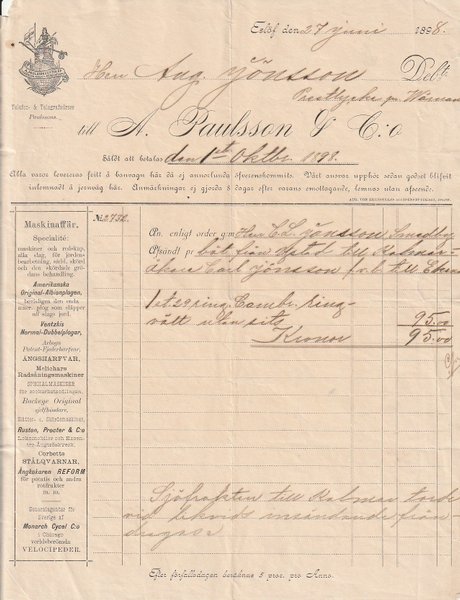 Eslöf den 27 juni 1898.
Herr Aug Jönsson Debt.
Telefon- & Telegrafadress
Paulssons.
Prestlycke pr
till A. Paulsson & C:o
Såldt att betalas den 1st Oktbr. 1898.
Alla varor levereras fritt å banvagn här då ej annorlunda öfverenskommits. Vårt ansvar upphör sedan godset blifvit
inlemnadt å jernväg här. Anmärkningar ej gjorda dagar efter varans emottagande, lemnas utan afseende.
Maskinaffär.
Specialité:
maskiner och redskap,
alla slag, för jordens
bearbetning, sådd, skörd
och den skördade grödans
behandling.
Amerikanska
Original-Albionplogen,
Ventzkis
Normal-Dubbelplogar,
Arboga
Patent-Fjederharfvar,
ÄNGSHARFVAR,
Melichars
Radsåningsmaskiner
SPECIALMASKINER
för sockerbetsodlingen.
Buckeye Original
själfbindare,
Slåtter- o. Skördemaskiner,
Ruston, Procter & C:o
Lokomobiler och
Ångtröskverk.
Corbetts
STÅLQVARNAR,
Ångkokaren REFORM
för potatis och andra
rotfrukter
m. m.
Generalagentur för
Sverige af
Monarch Cycel C:o
i Chicago
verldsberömda
VELOCIPEDER.
№ 2752.
An. enligt order g.m Herr C. L. Jönsson
Afsändt pr båt från Ystad till Kalmar
Carl Jönsson
1 st 29 ring. Cambr. ring-
vält utan sits 95.00
Kronor 95.00
Sjöfrakten till Kalmar torde
vid likvid insändande från-
dragas
Efter förfallodagen beräknas 5 proc. pro Anno.